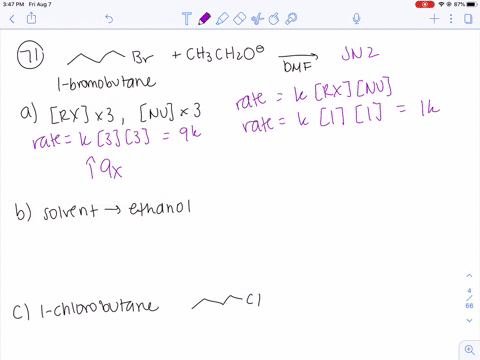 3:47 PM Fri Aug 7
87%
71
Br + CH3CH2O⊖ → DMF SN2
1-bromobutane
a) [RX] x 3, [NU] x 3
rate = k [RX][NU]
rate = k [3][3] = 9k
rate = k [1][1] = 1k
↑ 9x
b) solvent → ethanol
c) 1-chlorobutane Cl
4
/
66